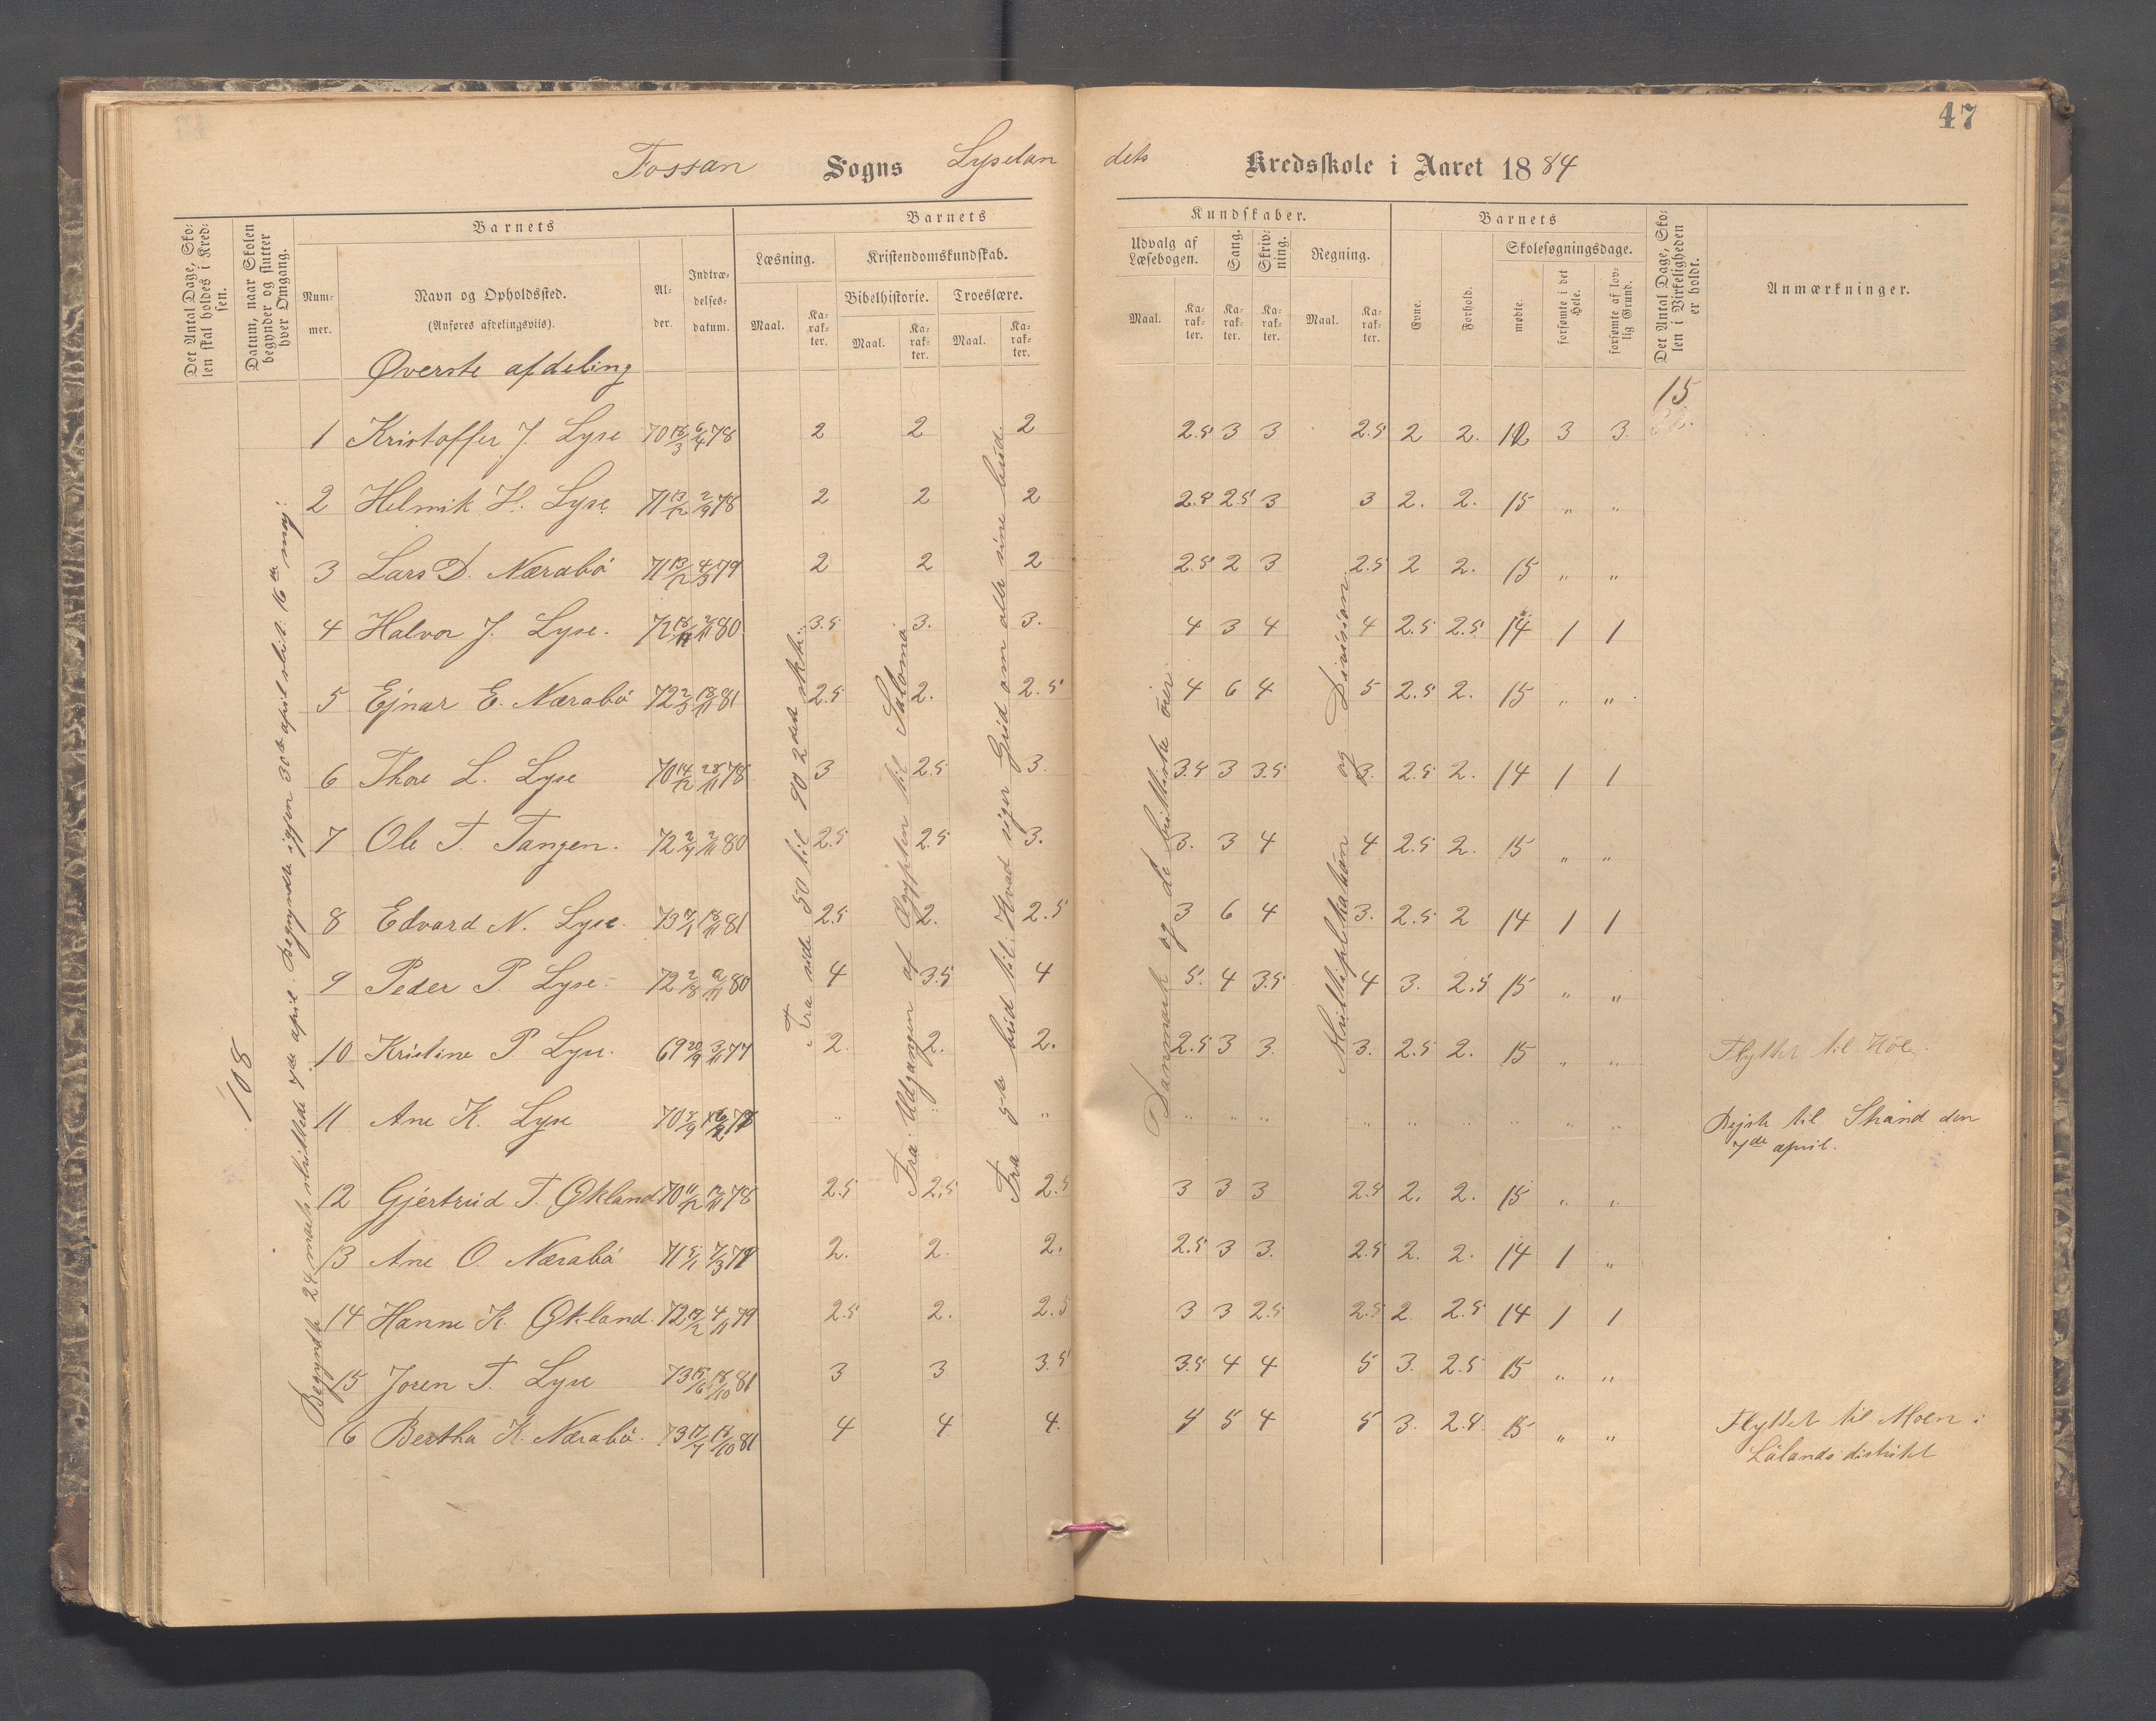 47
Fossan Sogns Lyselan dets Kredsskole i Aaret 1884
Det Antal Dage, Skolen skal holdes i Kredsen.
Datum, naar Skolen begynder og slutter hver Omgang.
Barnets
Nummer.
Navn og Opholdssted.
(Anføres afdelingsviis).
Alder.
Indtrædelsesdatum.
Barnets
Læsning.
Maal.
Karakter.
Kristendomskundskab.
Bibelhistorie.
Maal.
Karakter.
Troeslære.
Maal.
Karakter.
Kundskaber.
Udvalg af Læsebogen.
Maal.
Karakter.
Sang.
Karakter.
Skrivning.
Karakter.
Regning.
Maal.
Karakter.
Barnets
Evne.
Forhold.
Skolesøgningsdage.
mødte.
forsømte i det Hele.
forsømte af lovlig Grund.
Det Antal Dage, Skolen i Virkeligheden er holdt.
Anmærkninger.
Øverste afdeling
15
108
Begyndte 24 marts sluttede 7de april. Begyndte igjen 30te april slut. 16 maj.
Fra side 50 til 90 2det stkk.
Fra: Udgangen af Ægypten til Salomo
Fra 9de bud til: Hvad siger Gud om alle sine bud.
Danmark og de brittiske øier
Multiplikation og Division
1 Kristoffer J. Lyse 70 18/3 6/4 78 2 2 2 2.5 3 3 2.5 2 2. 12 3 3.
2 Helmik H. Lyse 71 13/12 2/9 78 2 2 2 2.5 2.5 3 3 2. 2. 15 „ „
3 Lars D. Nærabø 71 13/12 4/3 79 2 2 2 2.5 2 3 2.5 2 2. 15 „ „
4 Halvor J. Lyse. 72 18/11 2/11 80 3.5 3. 3. 4 3 4 4 2.5 2.5 14 1 1
5 Ejnar E. Nærabø 72 2/3 18/11 81 2.5 2. 2.5 4 6 4 5 2.5 2. 15 „ „
6 Thore L. Lyse 70 14/12 28/11 78 3 2.5 3. 3.5 3 3.5 3. 2.5 2. 14 1 1
7 Ole T. Tangen. 72 2/4 2/11 80 2.5 2.5 3. 3. 3 4 4 2.5 2. 15 „ „
8 Edvard N. Lyse. 73 7/1 18/11 81 2.5 2. 2.5 3 6 4 3. 2.5 2 14 1 1
9 Peder P. Lyse. 72 2/8 2/11 80 4 3.5 4 5. 4 3.5 4 3. 2.5 15 „ „
10 Kristine P. Lyse. 69 20/9 3/11 77 2. 2. 2. 2.5 3 3. 3. 2.5 2. 15 „ „ Flyttet til Høle
11 Ane K. Lyse 70 „ „ „ „ „ „ „ „ „ „ „ „ Rejste til Strand den
7de april.
12 Gjertrud T. Økland 70 11/12 12/11 78 2.5 2.5 2.5 3 3 3 2.5 2. 2. 15 „ „
13 Ane O. Nærabø 71 5/1 7/3 79 2. 2. 2. 2.5 3 3. 2.5 2. 2. 14 1 „
14 Hanne K. Økland. 72 4/11 79 2.5 2. 2.5 3 3 2.5 2.5 2. 2.5 14 1 1
15 Joren T. Lyse 73 18/10 81 3 3 3.5 3.5 4 4 5 3. 2.5 15 „ „
16 Bertha K. Nærabø. 73 17/7 18/10 81 4 4 4. 5 5 4 5 3. 2.5 15 „ „ Flyttet til Moen i
Lølands distrikt